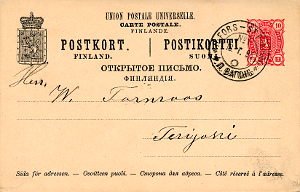 UNION POSTALE UNIVERSELLE.
CARTE POSTALE.
FINLANDE.
POSTKORT. POSTIKORTTI.
FINLAND. SUOMI
ОТКРЫТОЕ ПИСЬМО.
ФИНЛЯНДІЯ.
10
Herr
W. Törnroos
Terijoki
Sida för adressen. — Osoitteen puoli. — Сторона для адреса. — Côté réservé à l'adresse.